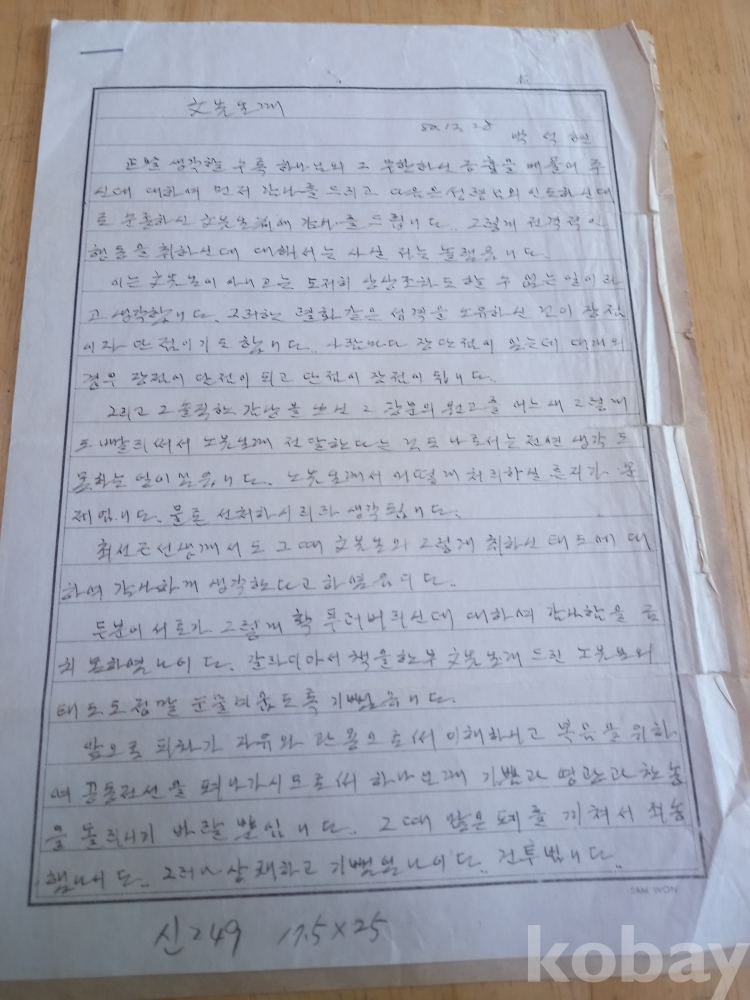 文목님께
박석현
正말 생각할수록 하나님의 그 무한하신 긍휼을 베풀어 주
신데 대하여 먼저 감사를 드리고 다음은 성령님의 인도하신대
로 순종하신 文목님께 감사를 드립니다. 그렇게 전격적인
행동을 취하신데 대해서는 사실 저는 놀랬읍니다.
이는 文목님이 아니고는 도저히 상상조차도 할 수 없는 일이라
고 생각합니다. 그러한 열화같은 성격을 소유하신 것이 장점
이자 단점이기도 합니다. 사람마다 장단점이 있는데 대개의
경우 장점이 단점이 되고 단점이 장점이 됩니다.
그리고 그 솔직한 그 장문의 원고를 어느새 그렇게
도 빨리 써서 노목님께 전달한다는 것도 나로서는 전연 생각도
못하는 일이었읍니다. 노목님께서 어떻게 처리하실른지가 문
제입니다. 물론 선처하시리라 생각됩니다.
최선근선생께서도 그때 文목님의 그렇게 취하신 태도에 대
하여 감사하게 생각한다고 하였읍니다.
두분이 서로가 그렇게 확 풀어버리신데 대하여 감사함을 금
치 못하였나이다. 갈라디아서 책을 한부 文목님께 드린 노목님의
태도도 정말 눈물겨웁도록 기뻤읍니다.
앞으로 피차가 자유와 관용으로써 이해하시고 복음을 위하
여 공동전선을 펴나가시므로써 하나님께 기쁨과 영광과 찬송
을 돌리시기 바랄뿐입니다. 그때 많은 폐를 끼쳐서 죄송
했나이다. 그러나 상쾌하고 기뻤었나이다. 건투빕니다.
SAM WON
신249 17.5×25
kobay